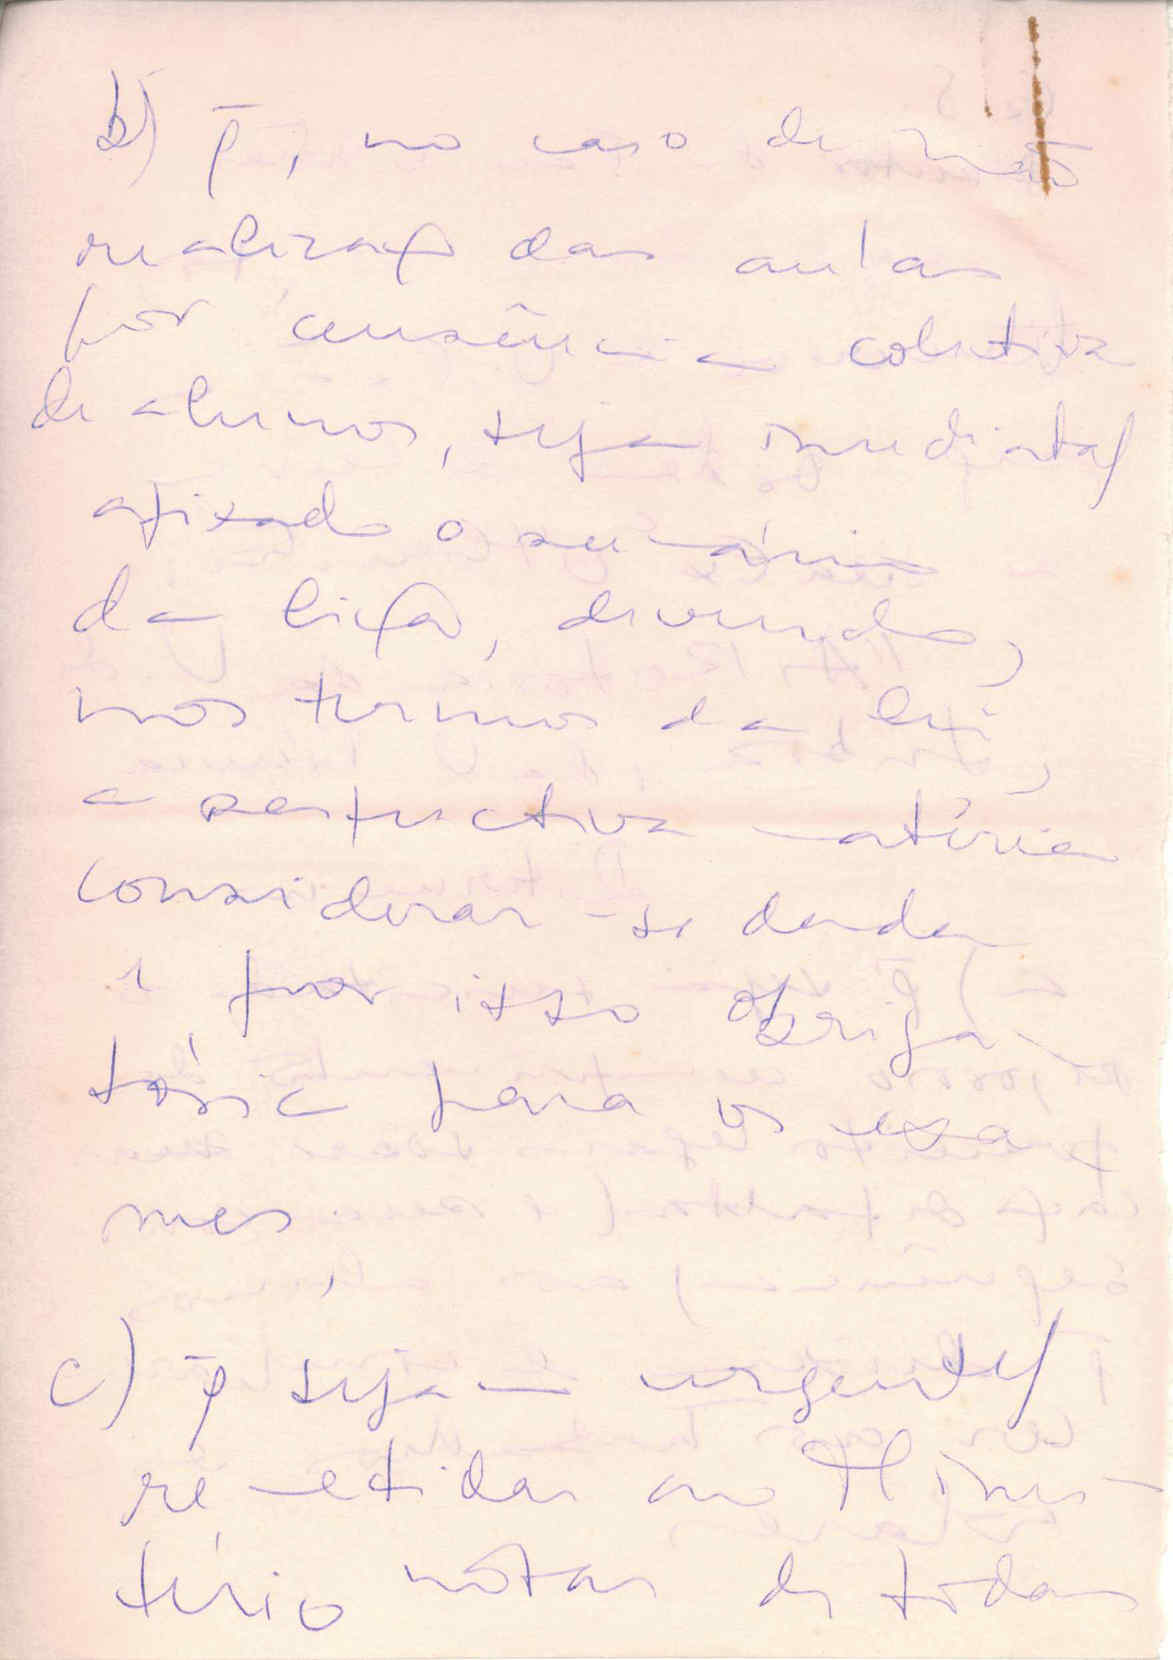 b) p̄, no caso de não
realizaç das aulas
por ausência colectiva
de alunos, seja imediata/
afixado o sumário
da lição, devendo,
nos termos da lei,
a respectiva matéria
considerar-se dada
e por isso obriga-
tória para os exa
mes.
c) p̄ sejam urgente/
remetidas ao Minis-
tério notas de todas